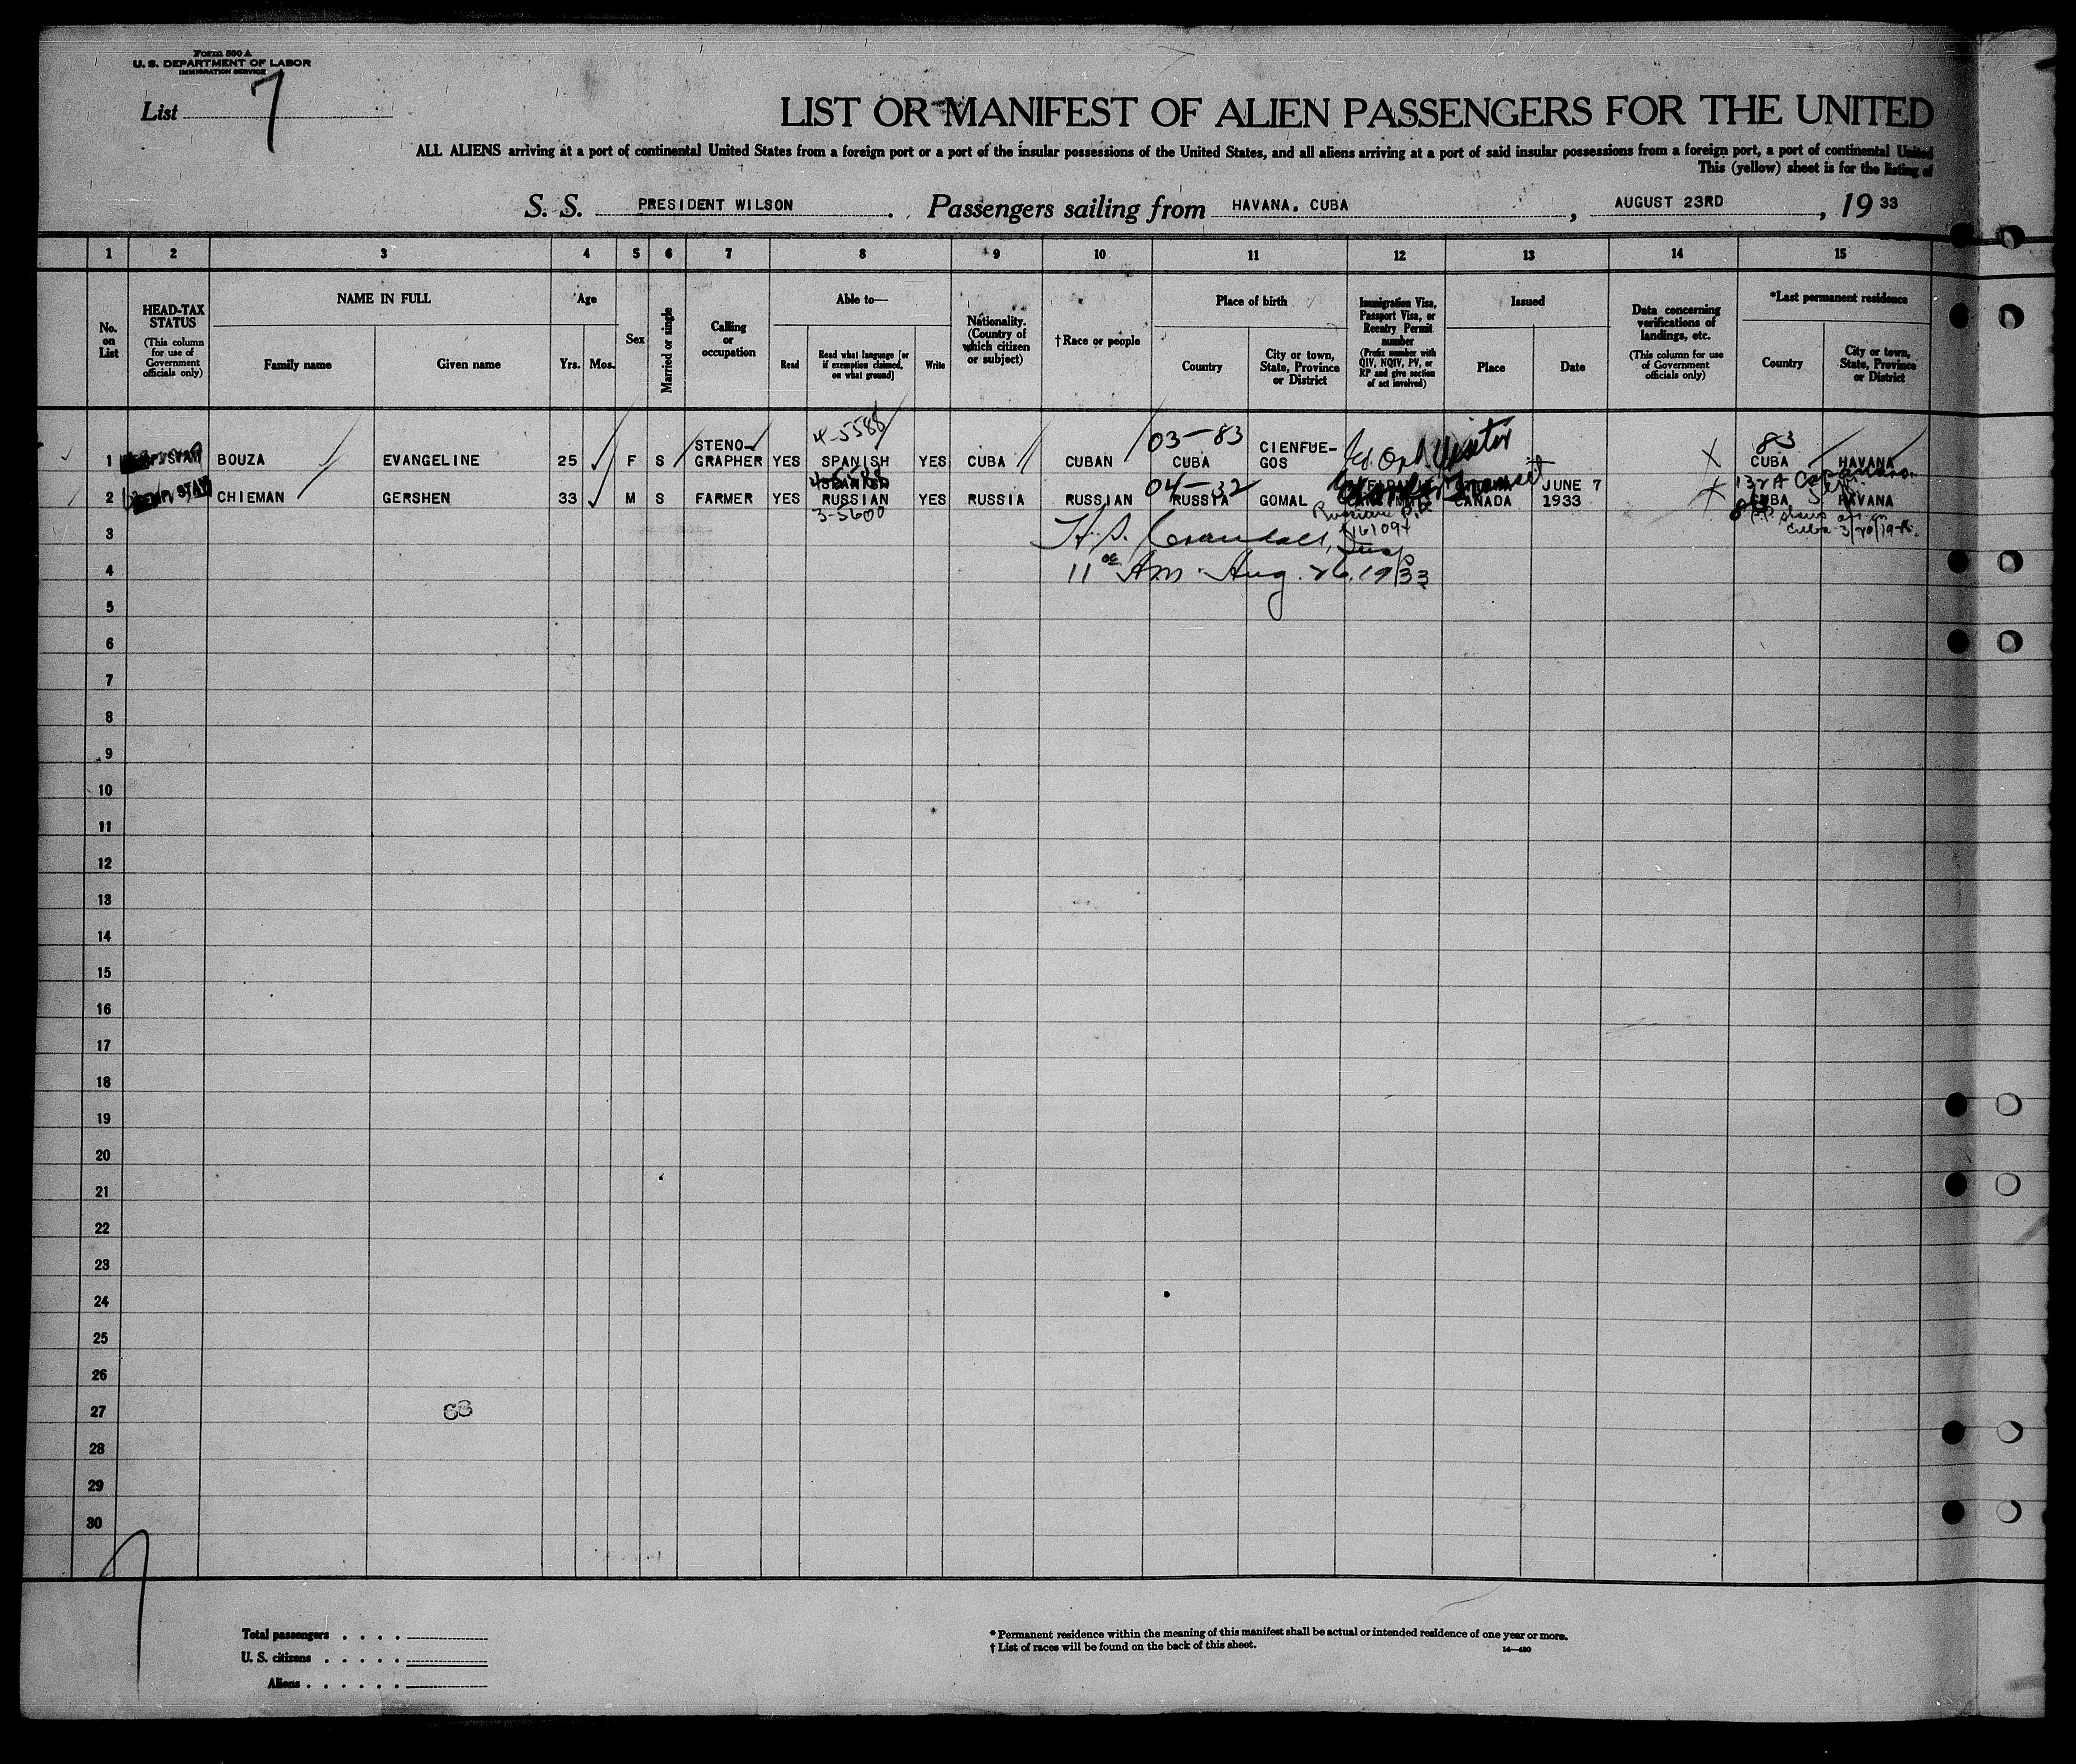 Form 500 A
U. S. DEPARTMENT OF LABOR
IMMIGRATION SERVICE
List 7
LIST OR MANIFEST OF ALIEN PASSENGERS FOR THE UNITED
ALL ALIENS arriving at a port of continental United States from a foreign port or a port of the insular possessions of the United States, and all aliens arriving at a port of said insular possessions from a foreign port, a port of continental United
This (yellow) sheet is for the listing of
S. S. PRESIDENT WILSON. Passengers sailing from HAVANA, CUBA, AUGUST 23RD, 19 33
1 2 3 4 5 6 7 8 9 10 11 12 13 14 15
No. on List
HEAD-TAX STATUS
(This column for use of Government officials only)
NAME IN FULL
Family name
Given name
Age
Yrs.
Mos.
Sex
Married or single
Calling or occupation
Able to—
Read
Read what language [or if exemption claimed, on what ground]
Write
Nationality. (Country of which citizen or subject)
†Race or people
Place of birth
Country
City or town, State, Province or District
Immigration Visa, Passport Visa, or Reentry Permit number
(Prefix number with QIV, NQIV, PV, or RP and give section of act involved)
Issued
Place
Date
Data concerning verifications of landings, etc.
(This column for use of Government officials only)
*Last permanent residence
Country
City or town, State, Province or District
4-5588
03-83
83
1 BOUZA EVANGELINE 25 F S STENO-GRAPHER YES SPANISH YES CUBA CUBAN CUBA CIENFUE-GOS Visitor CUBA HAVANA
04-32
2 CHIEMAN GERSHEN 33 M S FARMER YES RUSSIAN YES RUSSIA RUSSIAN RUSSIA GOMAL CANADA JUNE 7 1933 CUBA HAVANA
3-5600
Russian P.P.
3
H. S. Crandall, Insp
4
11 00 Am. Aug. 26, 1933
5
6
7
8
9
10
11
12
13
14
15
16
17
18
19
20
21
22
23
24
25
26
27
63
28
29
30
Total passengers
U. S. citizens
Aliens
* Permanent residence within the meaning of this manifest shall be actual or intended residence of one year or more.
† List of races will be found on the back of this sheet.
14—430